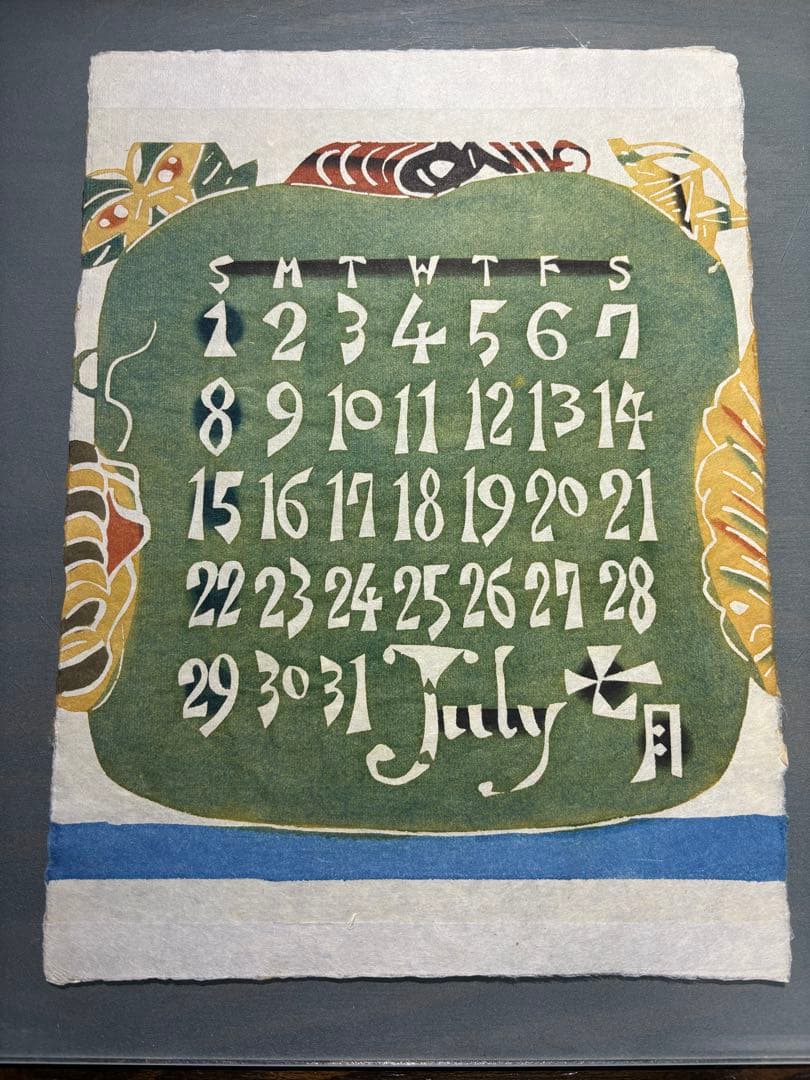 S M T W T F S
1 2 3 4 5 6 7
8 9 10 11 12 13 14
15 16 17 18 19 20 21
22 23 24 25 26 27 28
29 30 31 July 七月